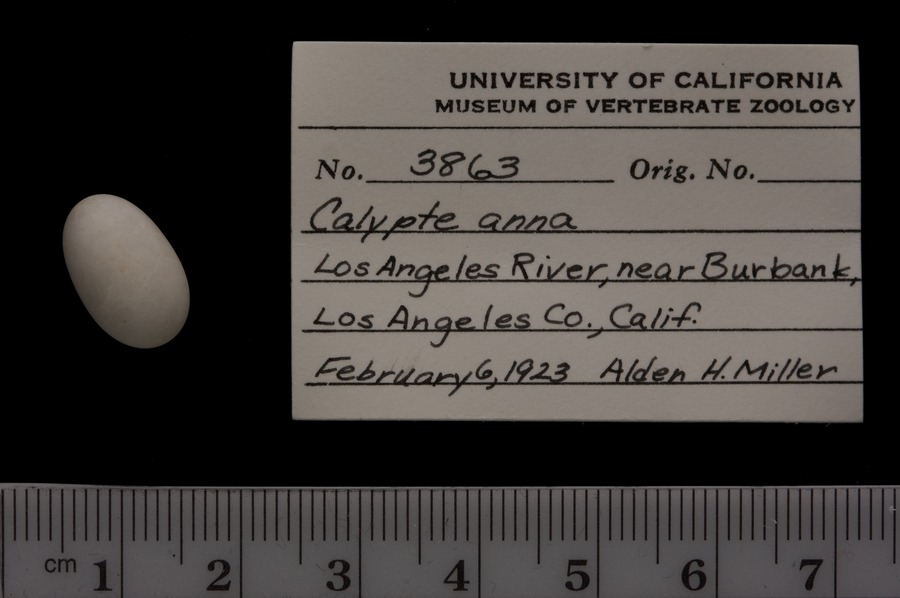 UNIVERSITY OF CALIFORNIA
MUSEUM OF VERTEBRATE ZOOLOGY
No. 3863 Orig. No.
Calypte anna
Los Angeles River, near Burbank,
Los Angeles Co., Calif.
February 6, 1923 Alden H. Miller
cm 1 2 3 4 5 6 7